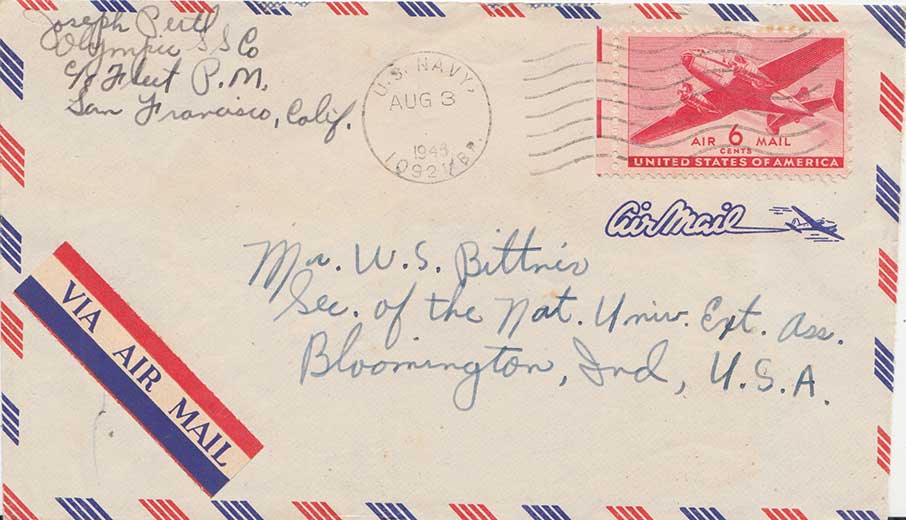 Joseph Pertl
Olympic S S Co
c/o Fleet P.M.
San Francisco, Calif.
U.S. NAVY
AUG 3
194
10921 BR.
AIR 6 MAIL
CENTS
UNITED STATES OF AMERICA
Air Mail
Mr. W.S. Bittner
Sec. of the Nat. Univ. Ext. Ass.
Bloomington, Ind, U.S.A.
VIA AIR MAIL